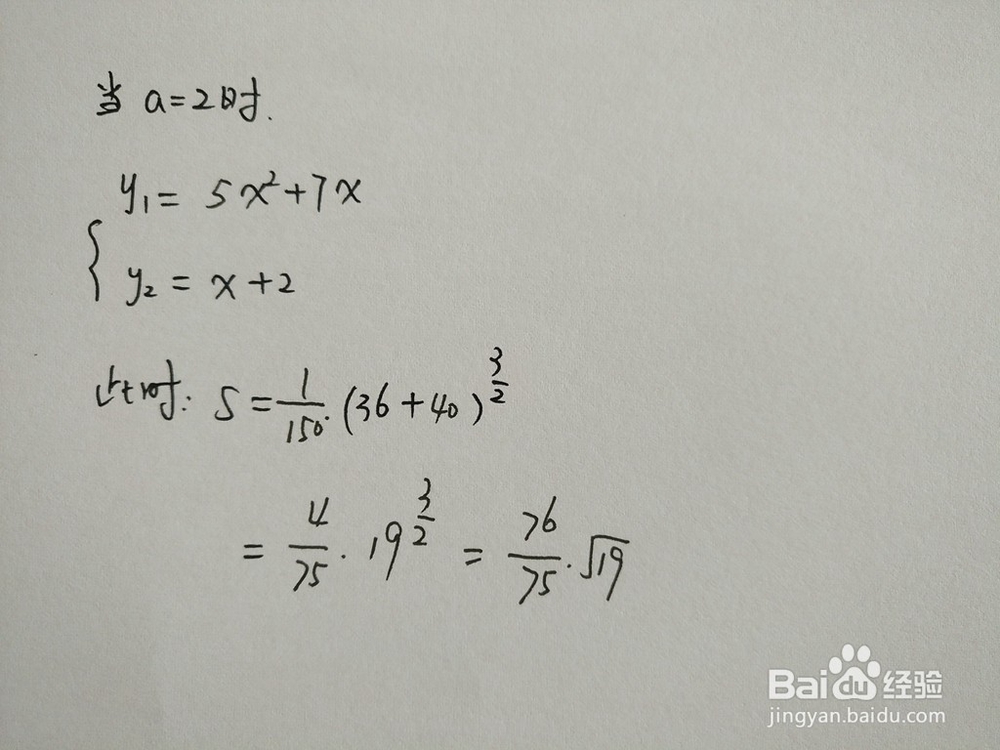 当 a=2时.
y₁ = 5x²+7x
{
y₂ = x+2
此时: S = 1/150 · (36+40)^(3/2)
= 4/75 · 19^(3/2) = 76/75 · √19
Baidu 经验
jingyan.baidu.com